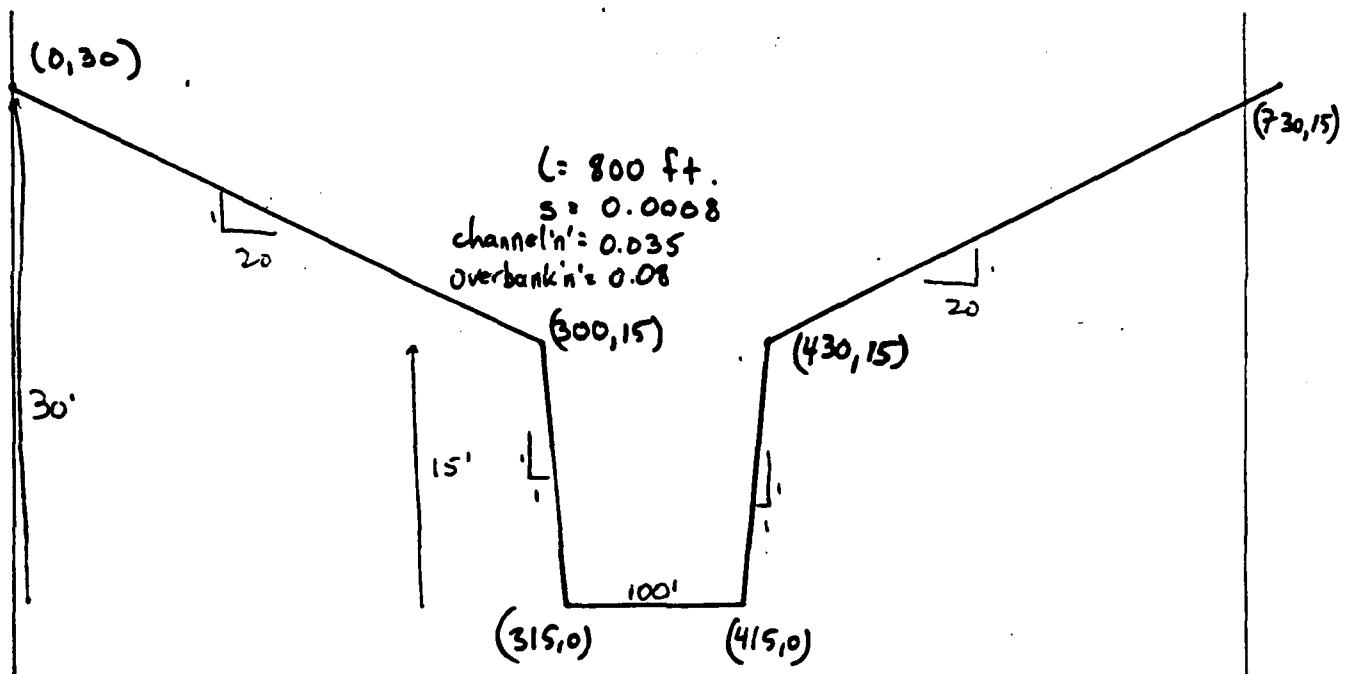 (0,30)
(730,15)
L= 800 ft.
s= 0.0008
channel 'n'= 0.035
overbank 'n'= 0.08
1
20
1
20
(300,15)
(430,15)
30'
15'
1
1
1
1
100'
(315,0)
(415,0)